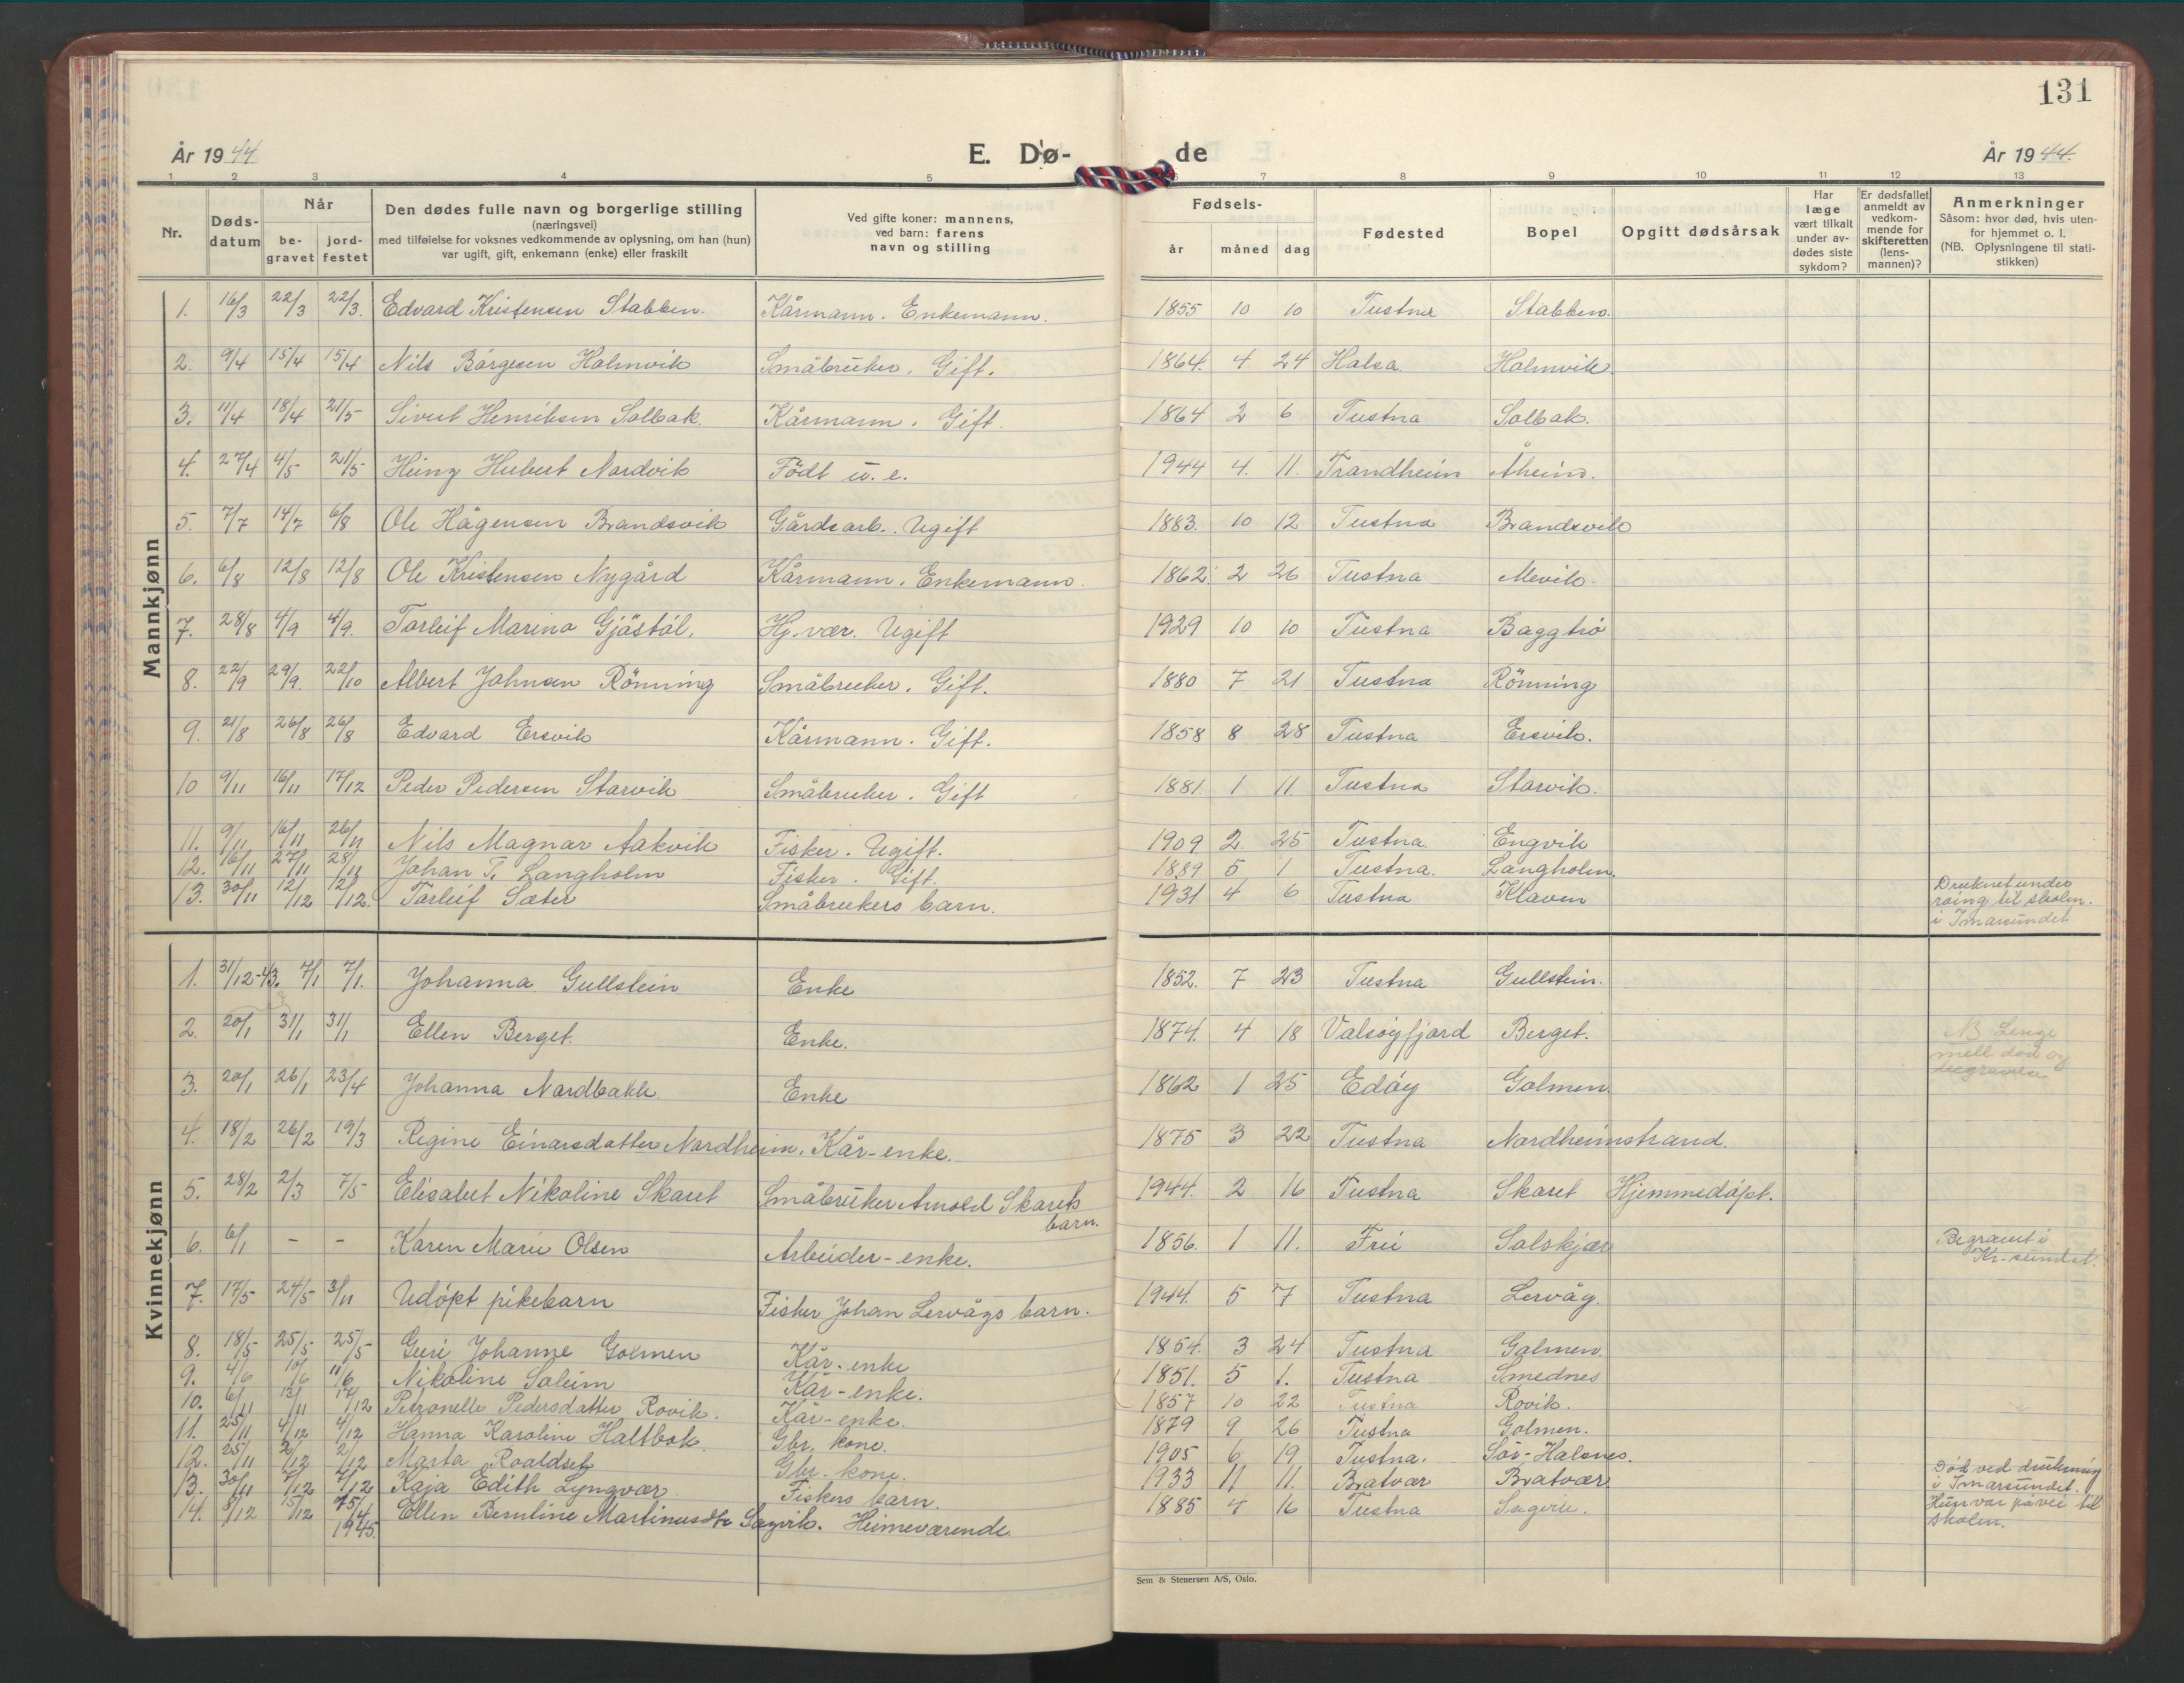 131
År 1944 E. Dø- de År 1944.
1 2 3 4 5 6 7 8 9 10 11 12 13
Nr. Døds-datum Når be-gravet jord-festet Den dødes fulle navn og borgerlige stilling (næringsvei) med tilføielse for voksnes vedkommende av oplysning, om han (hun) var ugift, gift, enkemann (enke) eller fraskilt Ved gifte koner: mannens, ved barn: farens navn og stilling Fødsels- år måned dag Fødested Bopel Opgitt dødsårsak Har læge vært tilkalt under av-dødes siste sykdom? Er dødsfallet anmeldt av vedkom-mende for skifteretten (lens-mannen)? Anmerkninger Såsom: hvor død, hvis uten-for hjemmet o. l. (NB. Oplysningene til stati-stikken)
Mannkjønn
1. 16/3 22/3 22/3. Edvard Kristensen Stabben. Kårmann. Enkemann. 1855 10 10 Tustna Stabben.
2. 9/4 15/4 15/4 Nils Börgesen Holmvik Småbruker. Gift. 1864. 4 24 Halsa. Holmvik.
3. 11/4 18/4 21/5 Sivert Henriksen Solbak. Kårmann. Gift. 1864 2 6 Tustna Solbak.
4. 27/4 4/5 21/5 Heinz Hubert Nordvik Födt u. e. 1944 4. 11. Trondheim Åheim.
5. 7/7 14/7 6/8 Ole Hågensen Brandsvik Gårdsarb. Ugift 1883. 10 12 Tustna Brandsvik
6. 6/8 12/8 12/8 Ole Kristensen Nygård Kårmann. Enkemann. 1862. 2 26 Tustna Mevik.
7. 28/8 4/9 4/9. Torleif Marino Gjöstöl. Hj. vær. Ugift 1929 10 10 Tustna Baggtrö
8. 22/9 29/9. 22/10 Albert Johnsen Rönning Småbruker. Gift. 1880 7 21 Tustna Rönning
9. 21/8 26/8 26/8 Edvard Ersvik Kårmann. Gift. 1858 8 28 Tustna Ersvik.
10 9/11 16/11 17/12 Peder Pedersen Storvik Småbruker. Gift 1881 1 11. Tustna Storvik.
11. 9/11 16/11 26/11 Nils Magnar Aakvik Fisker. Ugift. 1909 2. 25 Tustna Engvik
12. 16/11 27/11 28/11 Johan T. Langholm Fisker. Gift. 1889 5 1 Tustna. Langholm.
13. 30/11 12/12 12/12. Torleif Sæter Småbrukers barn. 1931 4 6 Tustna Klaven Druknet under roing til skolen. i Imarsundet
Kvinnekjønn
1. 31/12-43. 7/1 7/1. Johanna Gullstein Enke 1852. 7 23 Tustna Gullstein.
2. 20/1 31/1 31/1 Ellen Berget. Enke. 1874. 4 18 Valsöyfjord Berget. NB Lenge mell död og begravelse
3. 20/1 26/1 23/4 Johanna Nordbakk Enke 1862 1 25 Edöy Golmen
4. 18/2 26/2 19/3 Regine Einarsdatter Nordheim. Kår-enke. 1875 3 22 Tustna Nordheimstrand.
5. 28/2 2/3 7/5 Elisabet Nikoline Skaret Småbruker Arnold Skarets barn. 1944. 2 16 Tustna Skaret Hjemmedöpt.
6. 6/1 - - Karen Marie Olsen Arbeider-enke. 1856. 1 11. Frei Solskjær Begravet i Kr-sundet.
7. 17/5 24/5 3/11 Udöpt pikebarn Fisker Johan Lervågs barn. 1944. 5 7 Tustna Lervåg.
8. 18/5 25/5 25/5 Guri Johanne Golmen Kår-enke 1854. 3 24 Tustna Golmen.
9. 4/6 10/6 11/6 Nikoline Soleim Kår-enke. 1851. 5 1. Tustna Smednes
10. 6/11 13/11 17/12 Petronelle Pedersdatter Rovik. Kår-enke. 1857 10 22 Tustna Rovik.
11. 25/11 4/12 4/12 Hanna Karoline Haltbok. Gbr. kone. 1879 9 26 Tustna Golmen.
12. 25/11 2/12 2/12 Marta Roaldset Gbr. kone. 1905 6 19 Tustna. Sör-Halsnes.
13. 30/11 7/12 7/12 Kaja Edith Lyngvær Fiskers barn. 1933 11 11. Bratvær Bratvær Död ved drukning i Imarsundet. Hun var på vei til skolen.
14. 8/12 15/12 15/4 1945. Ellen Bernline Martinusdtr Sagvik. Heimeværende. 1885 4 16 Tustna Sagvik.
Sem & Stenersen A/S, Oslo.